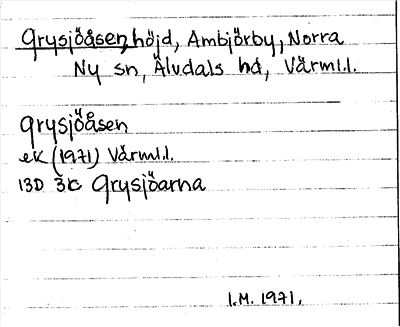 Grysjöåsen, höjd, Ambjörby, Norra
Ny sn, Älvdals hd, Värml.l.
Grysjöåsen
ek (1971) Värml.l.
13D 3c Grysjöarna
I.M. 1971.